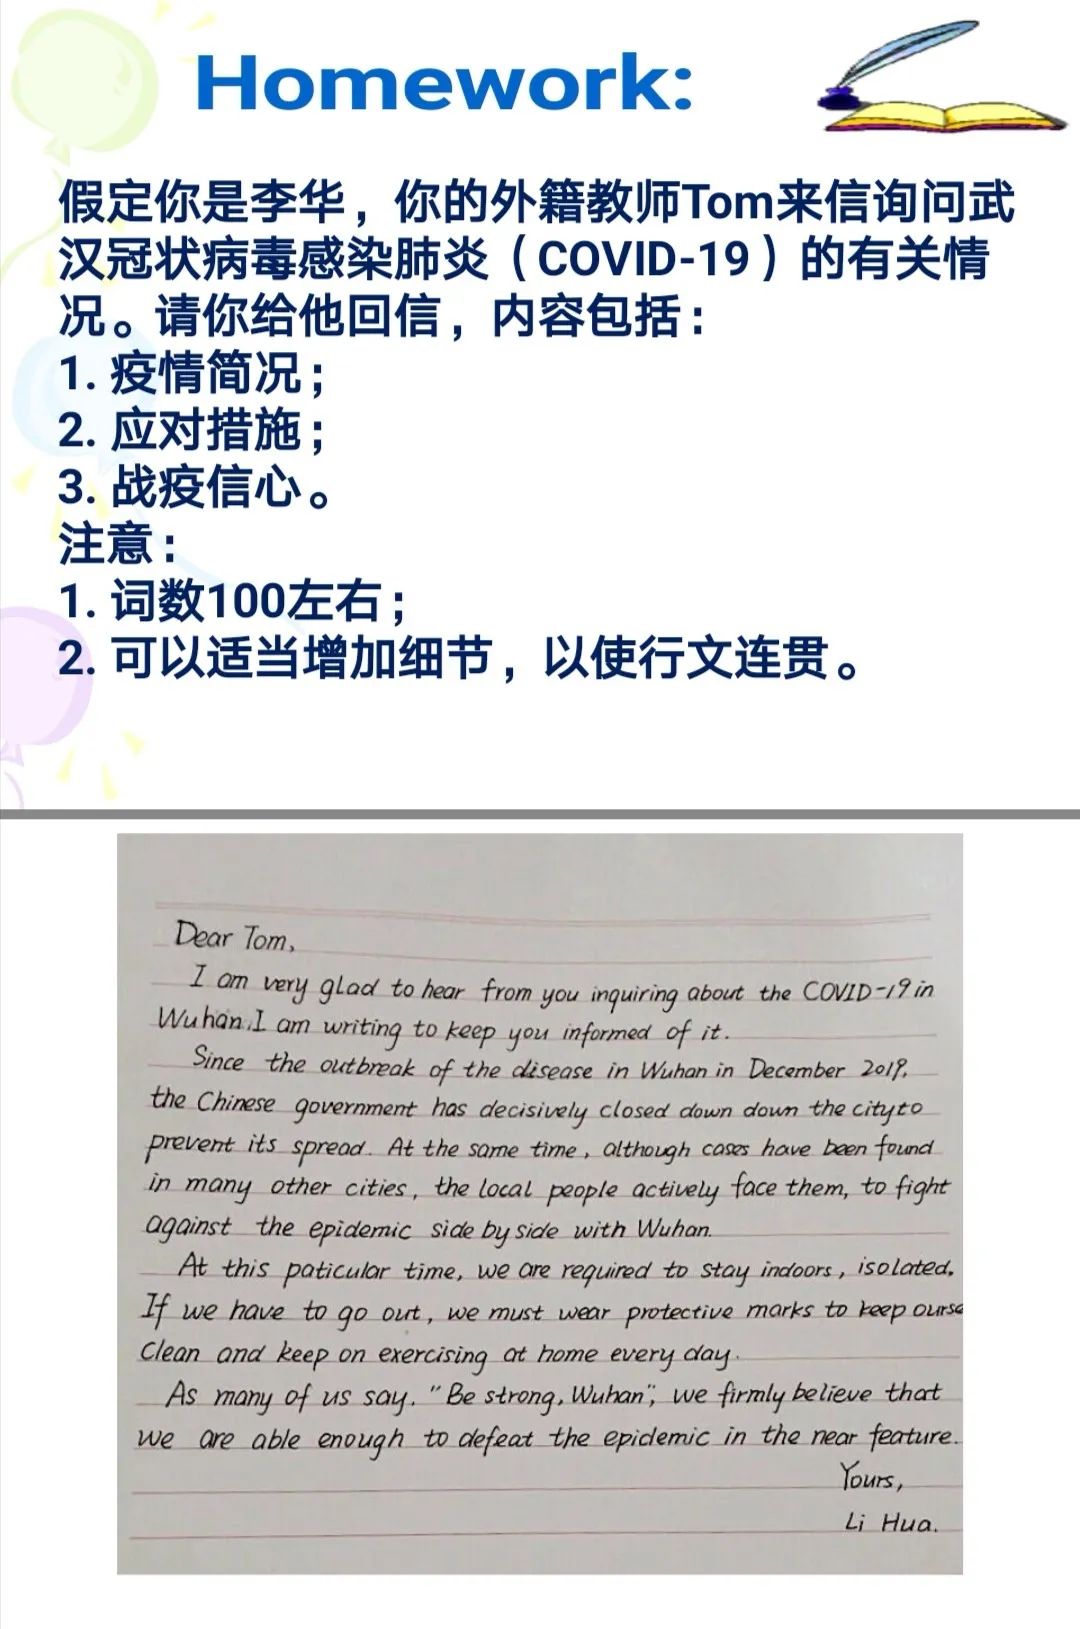 Homework:
假定你是李华，你的外籍教师Tom来信询问武
汉冠状病毒感染肺炎（COVID-19）的有关情
况。请你给他回信，内容包括：
1. 疫情简况；
2. 应对措施；
3. 战疫信心。
注意：
1. 词数100左右；
2. 可以适当增加细节，以使行文连贯。
Dear Tom,
I am very glad to hear from you inquiring about the COVID-19 in
Wuhan. I am writing to keep you informed of it.
Since the outbreak of the disease in Wuhan in December 2019,
the Chinese government has decisively closed down down the city to
prevent its spread. At the same time, although cases have been found
in many other cities, the local people actively face them, to fight
against the epidemic side by side with Wuhan.
At this paticular time, we are required to stay indoors, isolated.
If we have to go out, we must wear protective marks to keep ourse
clean and keep on exercising at home every day.
As many of us say, "Be strong, Wuhan", we firmly believe that
we are able enough to defeat the epidemic in the near feature.
Yours,
Li Hua.